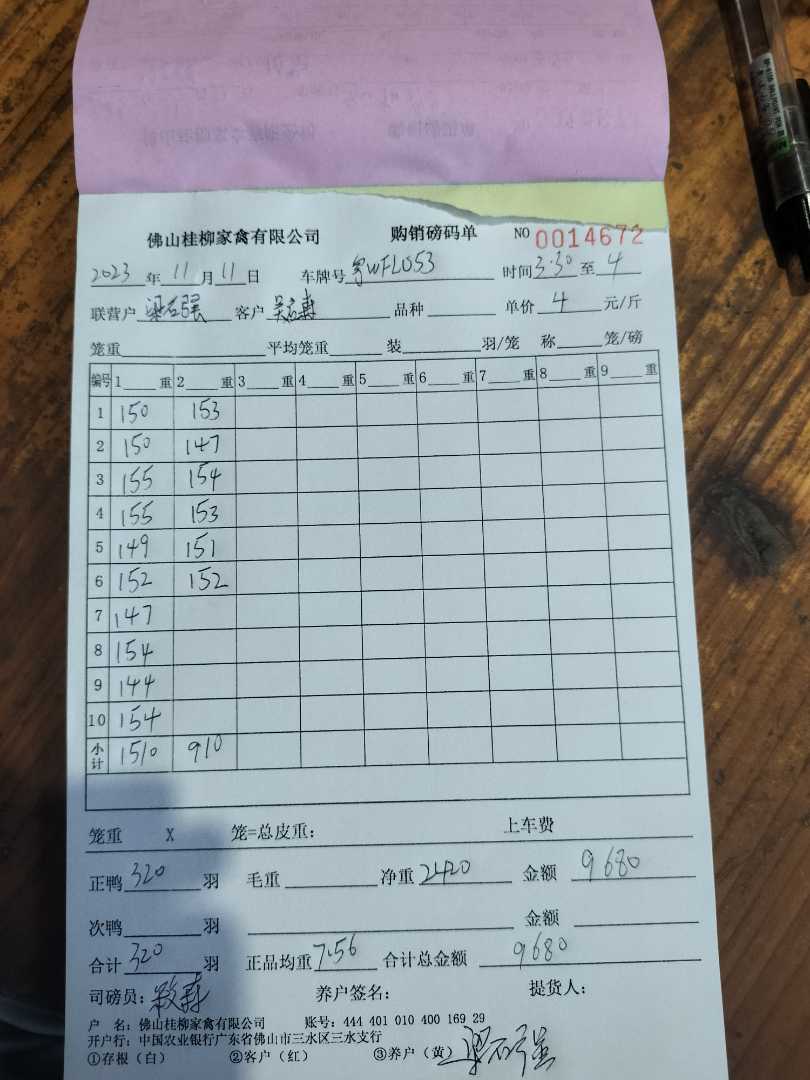 佛山桂柳家禽有限公司 购销磅码单 NO 0014672
2023 年 11 月 11 日 车牌号 粤WFL053 时间 3:30 至 4
联营户 梁石强 客户 品种 单价 4 元/斤
笼重 平均笼重 装 羽/笼 称 笼/磅
编号 1 重 2 重 3 重 4 重 5 重 6 重 7 重 8 重 9 重
1 150 153
2 150 147
3 155 154
4 155 153
5 149 151
6 152 152
7 147
8 154
9 144
10 154
小计 1510 910
笼重 X 笼=总皮重: 上车费
正鸭 320 羽 毛重 净重 2420 金额 9680
次鸭 羽 金额
合计 320 羽 正品均重 7.56 合计总金额 9680
司磅员: 养户签名: 提货人:
户 名: 佛山桂柳家禽有限公司 账号: 444 401 010 400 169 29
开户行: 中国农业银行广东省佛山市三水区三水支行
①存根（白） ②客户（红） ③养户（黄）